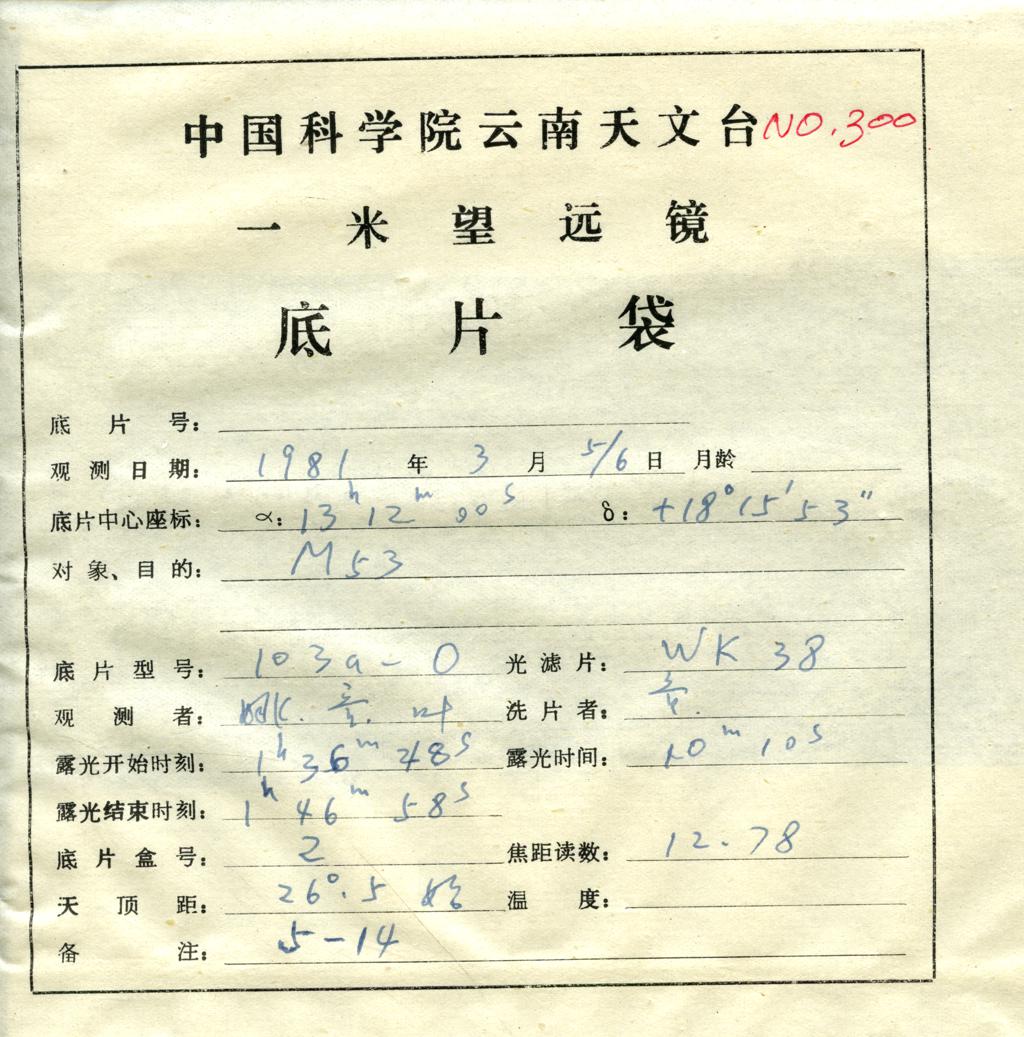 中国科学院云南天文台 NO.300
一米望远镜
底片袋
底片号:
观测日期: 1981年3月5/6日 月龄
底片中心座标: α: 13h12m00s δ: +18°15′53″
对象、目的: M53
底片型号: 103a-O 光滤片: WK 38
观测者: 叶 洗片者:
露光开始时刻: 1h36m48s 露光时间: 10m10s
露光结束时刻: 1h46m58s
底片盒号: 2 焦距读数: 12.78
天顶距: 26°.5 始 温度:
备注: 5-14